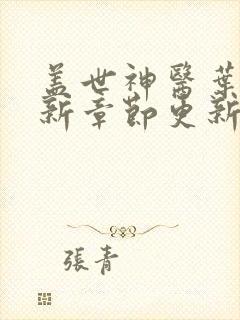 盖世神醫葉
新章節更新
張青